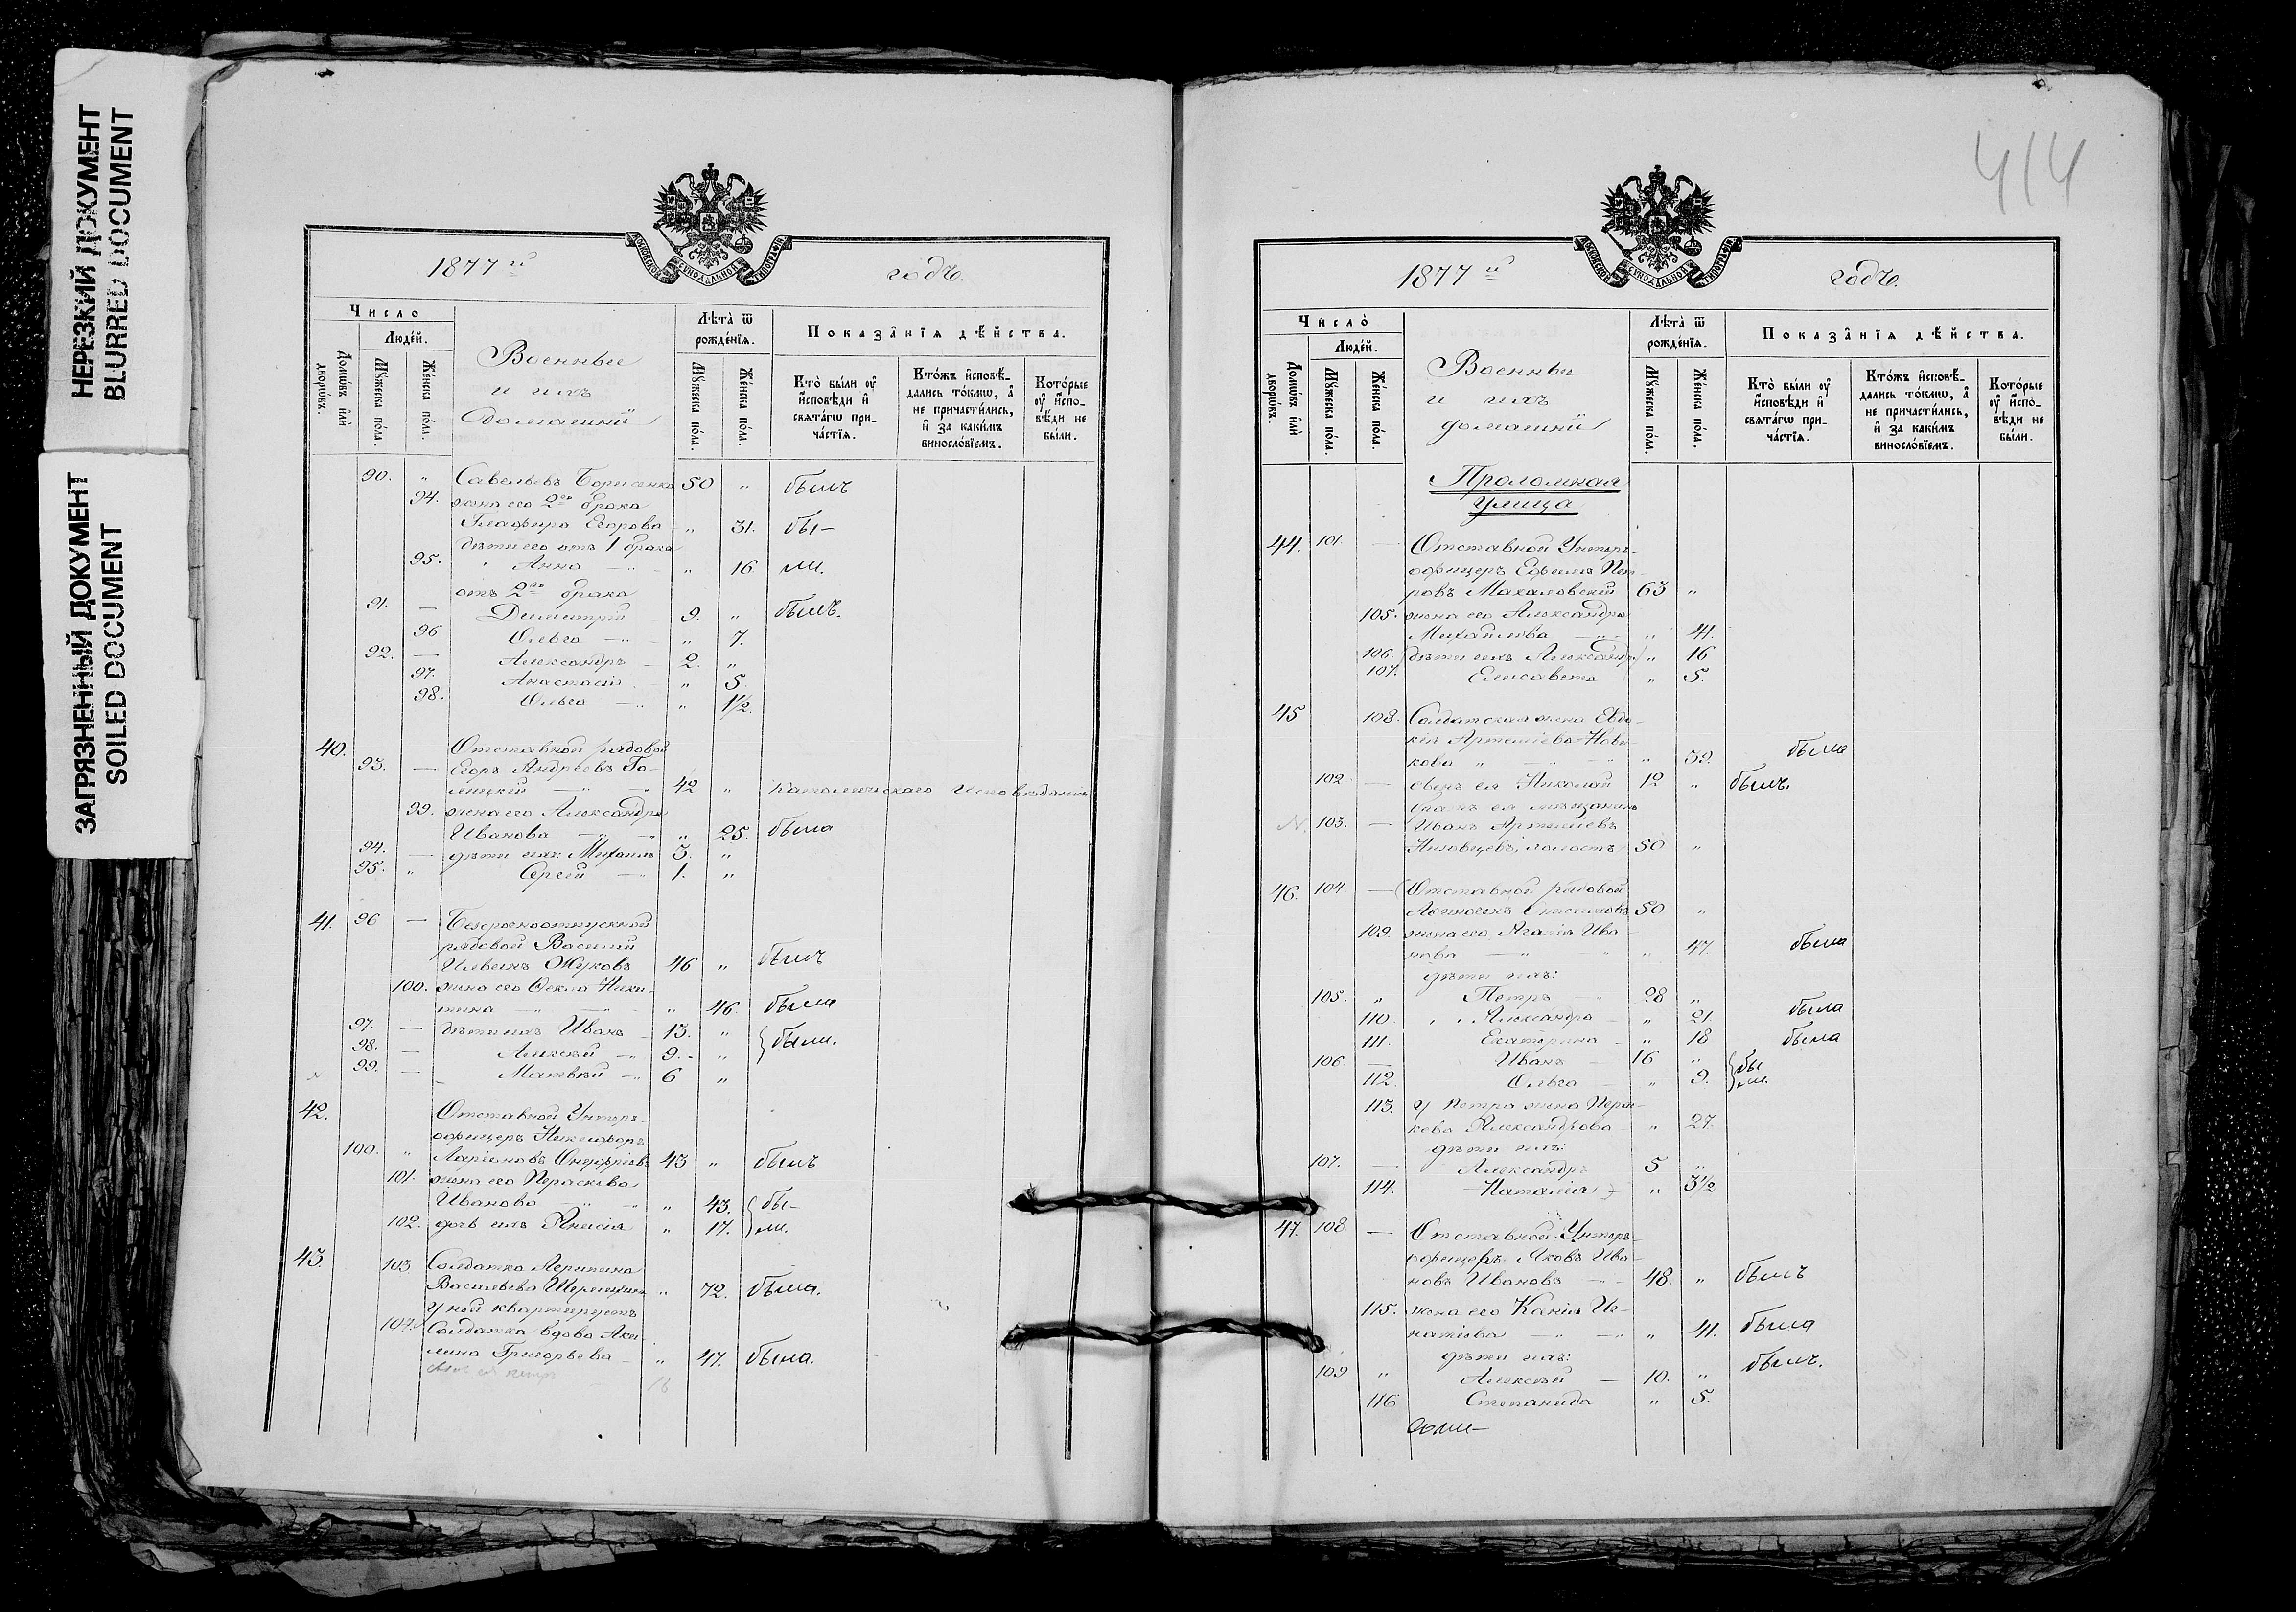 НЕРЕЗКИЙ ДОКУМЕНТ
BLURRED DOCUMENT
ЗАГРЯЗНЕННЫЙ ДОКУМЕНТ
SOILED DOCUMENT
МОСКОВСКОЙ СѴНОДАЛЬНОЙ ТИПОГРАФІИ
1877 й годъ.
Число
Людей.
Домѡвъ или дворѡвъ.
Мꙋжеска пола.
Женска пола.
Военные
и ихъ
домашніи
Лѣта ѿ рожденїѧ.
Мꙋжеска пола.
Женска пола.
Показанїѧ дѣйства.
Кто были оу исповѣди и свѧтагѡ причастїѧ.
Ктожъ исповѣдались токмѡ, а не причастились, и за какимъ винословїемъ.
Которые оу исповѣди не были.
90. „ Савельевъ Борисенко 50 „ былъ
94. жена его 2го брака
Глафира Егорова „ 31. бы-
дѣти его отъ 1 брака
95. Анна „ 16 ли.
отъ 2го брака
91. — Димитрій 9. „ былъ.
96 Ольга „ 7.
92. — Александръ 2. „
97. Анастасія „ 5.
98. Ольга „ 1½.
40. Отставной рядовой
93. — Егоръ Андреевъ Го-
лицкій 42 „ Католическаго Исповѣданія
99. жена его Александра
Иванова „ 25. была
94. — дѣти ихъ: Михаилъ 3. „
95. „ Сергей 1. „
41. 96 — Безсрочноотпускной
рядовой Василій
Ильинъ Жуковъ 46 „ былъ
100. жена его Ѳекла Ники-
тина „ 46. была
97. — дѣти ихъ Иванъ 13. „ были.
98. — Алексѣй 9. „
99. — Матвѣй 6 „
42. Отставной Унтеръ
офицеръ Никифоръ
100. „ Ларіоновъ Онуфріевъ 43 „ былъ
101. жена его Параскева
Иванова „ 43. бы-
102. дочь ихъ Анисія „ 17. ли.
43. 103 Солдатка
Васильева „ 72. была.
У ней квартируетъ
104. Солдатка вдова Аки-
лина Григорьева „ 47. была.
18
414
1877 й годъ.
МОСКОВСКОЙ СѴНОДАЛЬНОЙ ТИПОГРАФІИ
Число
Людей.
Домѡвъ или дворѡвъ.
Мꙋжеска пола.
Женска пола.
Военные
и ихъ
домашніи
Лѣта ѿ рожденїѧ.
Мꙋжеска пола.
Женска пола.
Показанїѧ дѣйства.
Кто были оу исповѣди и свѧтагѡ причастїѧ.
Ктожъ исповѣдались токмѡ, а не причастились, и за какимъ винословїемъ.
Которые оу исповѣди не были.
Проломная
улица
44. 101. — Отставной Унтеръ-
офицеръ Ефимъ Пет-
ровъ Махаловскій 63 „
105. жена его Александра
Михайлова „ 41.
106. дѣти ихъ Александра „ 16
107. Елисавета „ 5.
45 108. Солдатская жена Евдо-
кія Артеміева Нови-
кова „ „ 39. была
102 — сынъ ея Николай 12 „ былъ.
братъ ея мѣщанинъ
103. — Иванъ Артеміевъ
холостъ 50 „
46. 104. — Отставной рядовой
50 „
109. жена его Агафія Ива-
нова „ 47. была
дѣти ихъ:
105. „ Петръ 28 „
110. „ Александра „ 21. была
111. Екатерина „ 18 была
106. — Иванъ 16 „ бы
112. Ольга „ 9. ли.
113. У Петра жена Парас-
кева Александрова „ 27.
дѣти ихъ:
107. — Александръ 5 „
114. Наталія „ 3½
47. 108 — Отставной Унтеръ-
офицеръ Яковъ Ива-
новъ Ивановъ 48. „ былъ
115. жена его Ксенія Иг-
натіева „ 41. была
дѣти ихъ:
109 „ Алексѣй 10. „ былъ.
116 Степанида „ 5.